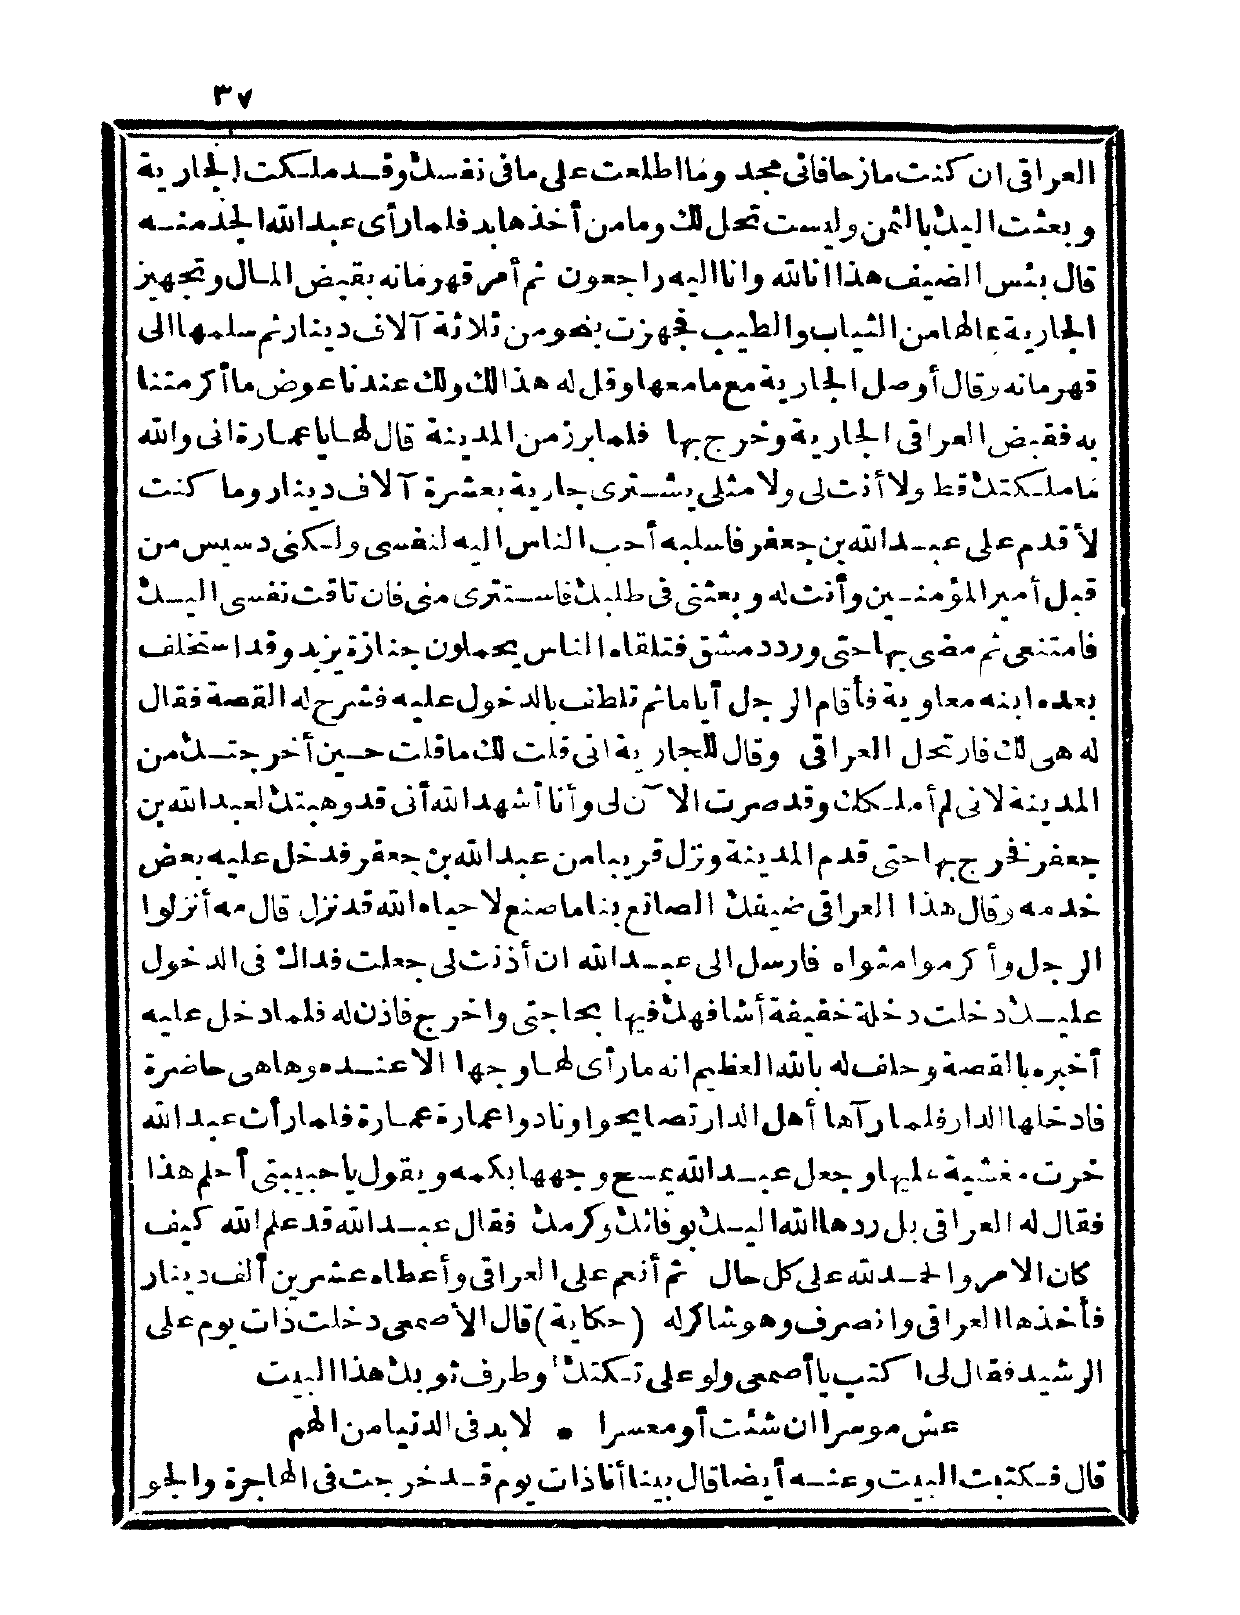 ٣٧
العراقى ان كنت مازحا فانى مجد وما اطلعت على ما فى نفسك وقد ملكت الجارية
وبعثت اليك بالثمن وليست تحل لك وما من أخذها بد فلما رأى عبد الله الجد منه
قال بئس الضيف هذا انا لله وانا اليه راجعون ثم أمر قهرمانه بقبض المال وتجهيز
الجارية بما لها من الثياب والطيب فجهزت بنحو من ثلاثة آلاف دينار ثم سلمها الى
قهرمانه وقال أوصل الجارية مع ما معها وقل له هذا لك ولك عندنا عوض ما أكرمتنا
به فقبض العراقى الجارية وخرج بها فلما برز من المدينة قال لها يا عمارة انى والله
ما ملكتك قط ولا أنت لى ولا مثلى يشترى جارية بعشرة آلاف دينار وما كنت
لأقدم على عبد الله بن جعفر فاسلبه أحب الناس اليه لنفسى ولكنى دسيس من
قبل أمير المؤمنين وأنت له وبعثنى فى طلبك فاستترى منى فان تاقت نفسى اليك
فامتنعى ثم مضى بها حتى ورد دمشق فتلقاه الناس يحملون جنازة يزيد وقد استخلف
بعده ابنه معاوية فأقام الرجل أياما ثم تلطف بالدخول عليه فشرح له القصة فقال
له هى لك فارتحل العراقى وقال للجارية انى قلت لك ما قلت حين أخرجتك من
المدينة لانى لم أملكك وقد صرت الآن لى وأنا أشهد الله أنى قد وهبتك لعبد الله بن
جعفر نخرج بها حتى قدم المدينة ونزل قريبا من عبد الله بن جعفر فدخل عليه بعض
خدمه وقال هذا العراقى ضيفك الصانع بنا ما صنع لا حياه الله قد نزل قال مه أنزلوا
الرجل وأكرموا مثواه فارسل الى عبد الله ان أذنت لى جعلت فداك فى الدخول
عليك دخلت دخلة خفيفة أشافهك فيها بحاجتى واخرج فاذن له فلما دخل عليه
أخبره بالقصة وحلف له بالله العظيم انه ما رأى لها وجها الا عنده وها هى حاضرة
فادخلها الدار فلما رآها أهل الدار تصايحوا ونادوا عمارة عمارة فلما رأت عبد الله
خرت مغشية عليها وجعل عبد الله يمسح وجهها بكمه ويقول يا حبيبتى أحلم هذا
فقال له العراقى بل ردها الله اليك بوفائك وكرمك فقال عبد الله قد علم الله كيف
كان الامر والحمد لله على كل حال ثم أنعم على العراقى وأعطاه عشرين ألف دينار
فأخذها العراقى وانصرف وهو شاكر له (حكاية) قال الأصمعى دخلت ذات يوم على
الرشيد فقال لى اكتب يا أصمعى ولو على تكتك وطرف ثوبك هذا البيت
عش موسرا ان شئت أو معسرا • لا بد فى الدنيا من الهم
قال فكتبت البيت وعنه أيضا قال بينا أنا ذات يوم قد خرجت فى الهاجرة والجو